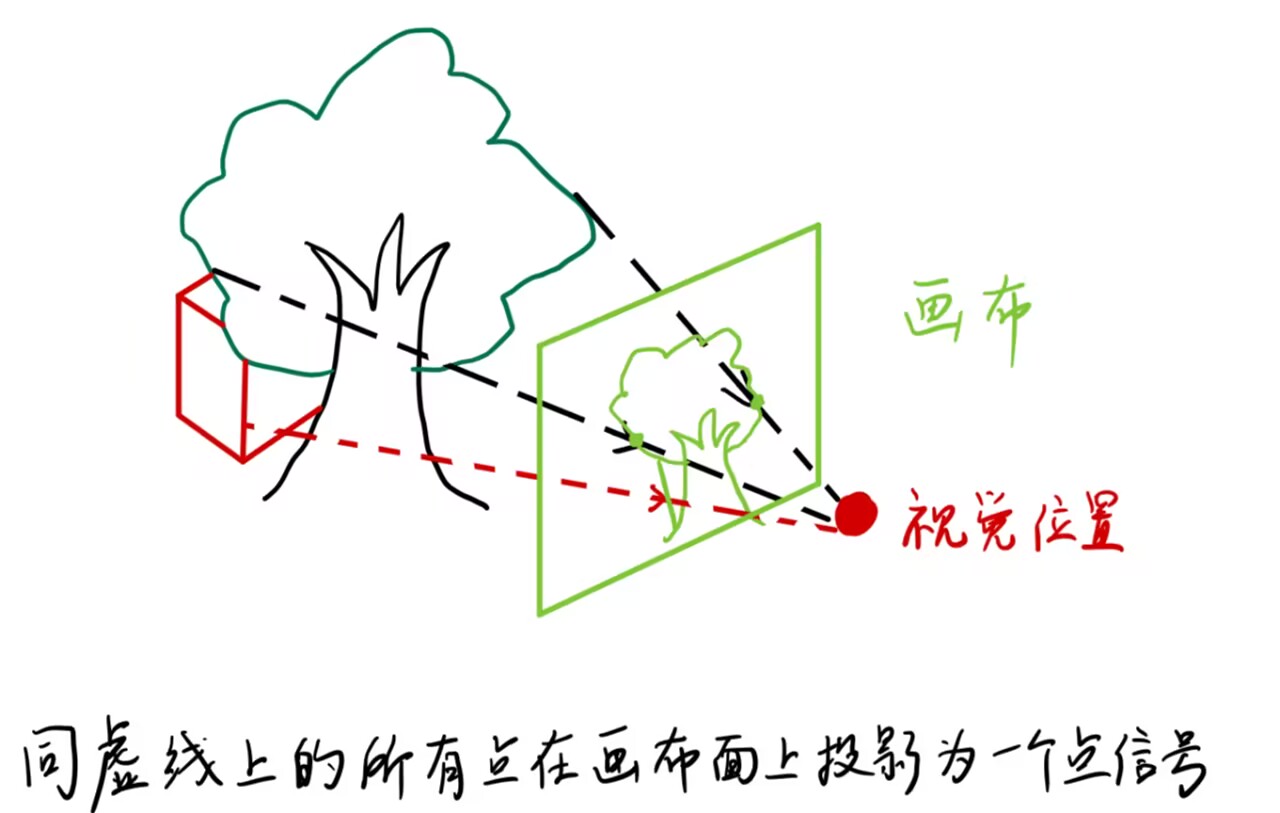 画布
视觉位置
同虚线上的所有点在画布面上投影为一个点信号